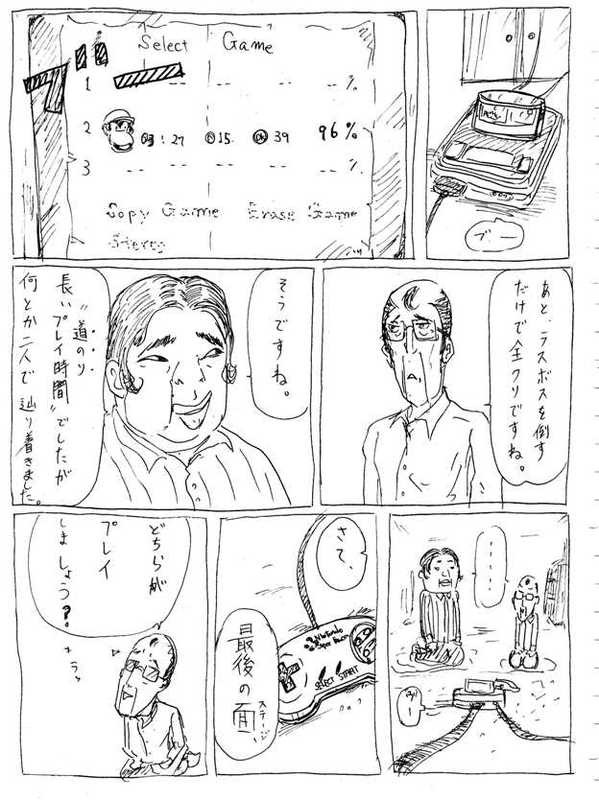 ブー
Select Game
ブー
1 -- -- -- --%
2 03:27 15 39 96%
3 -- -- -- --%
Copy Game Erase Game
Stereo
あと、ラスボスを倒す
だけで全クリですね。
そうですね。
"道のり
長いプレイ時間"でしたが
何とか二人で辿り着きました。
......
さて、
最後の面、
ステージ
Nintendo
SELECT START
どちらが
プレイ
しましょう?